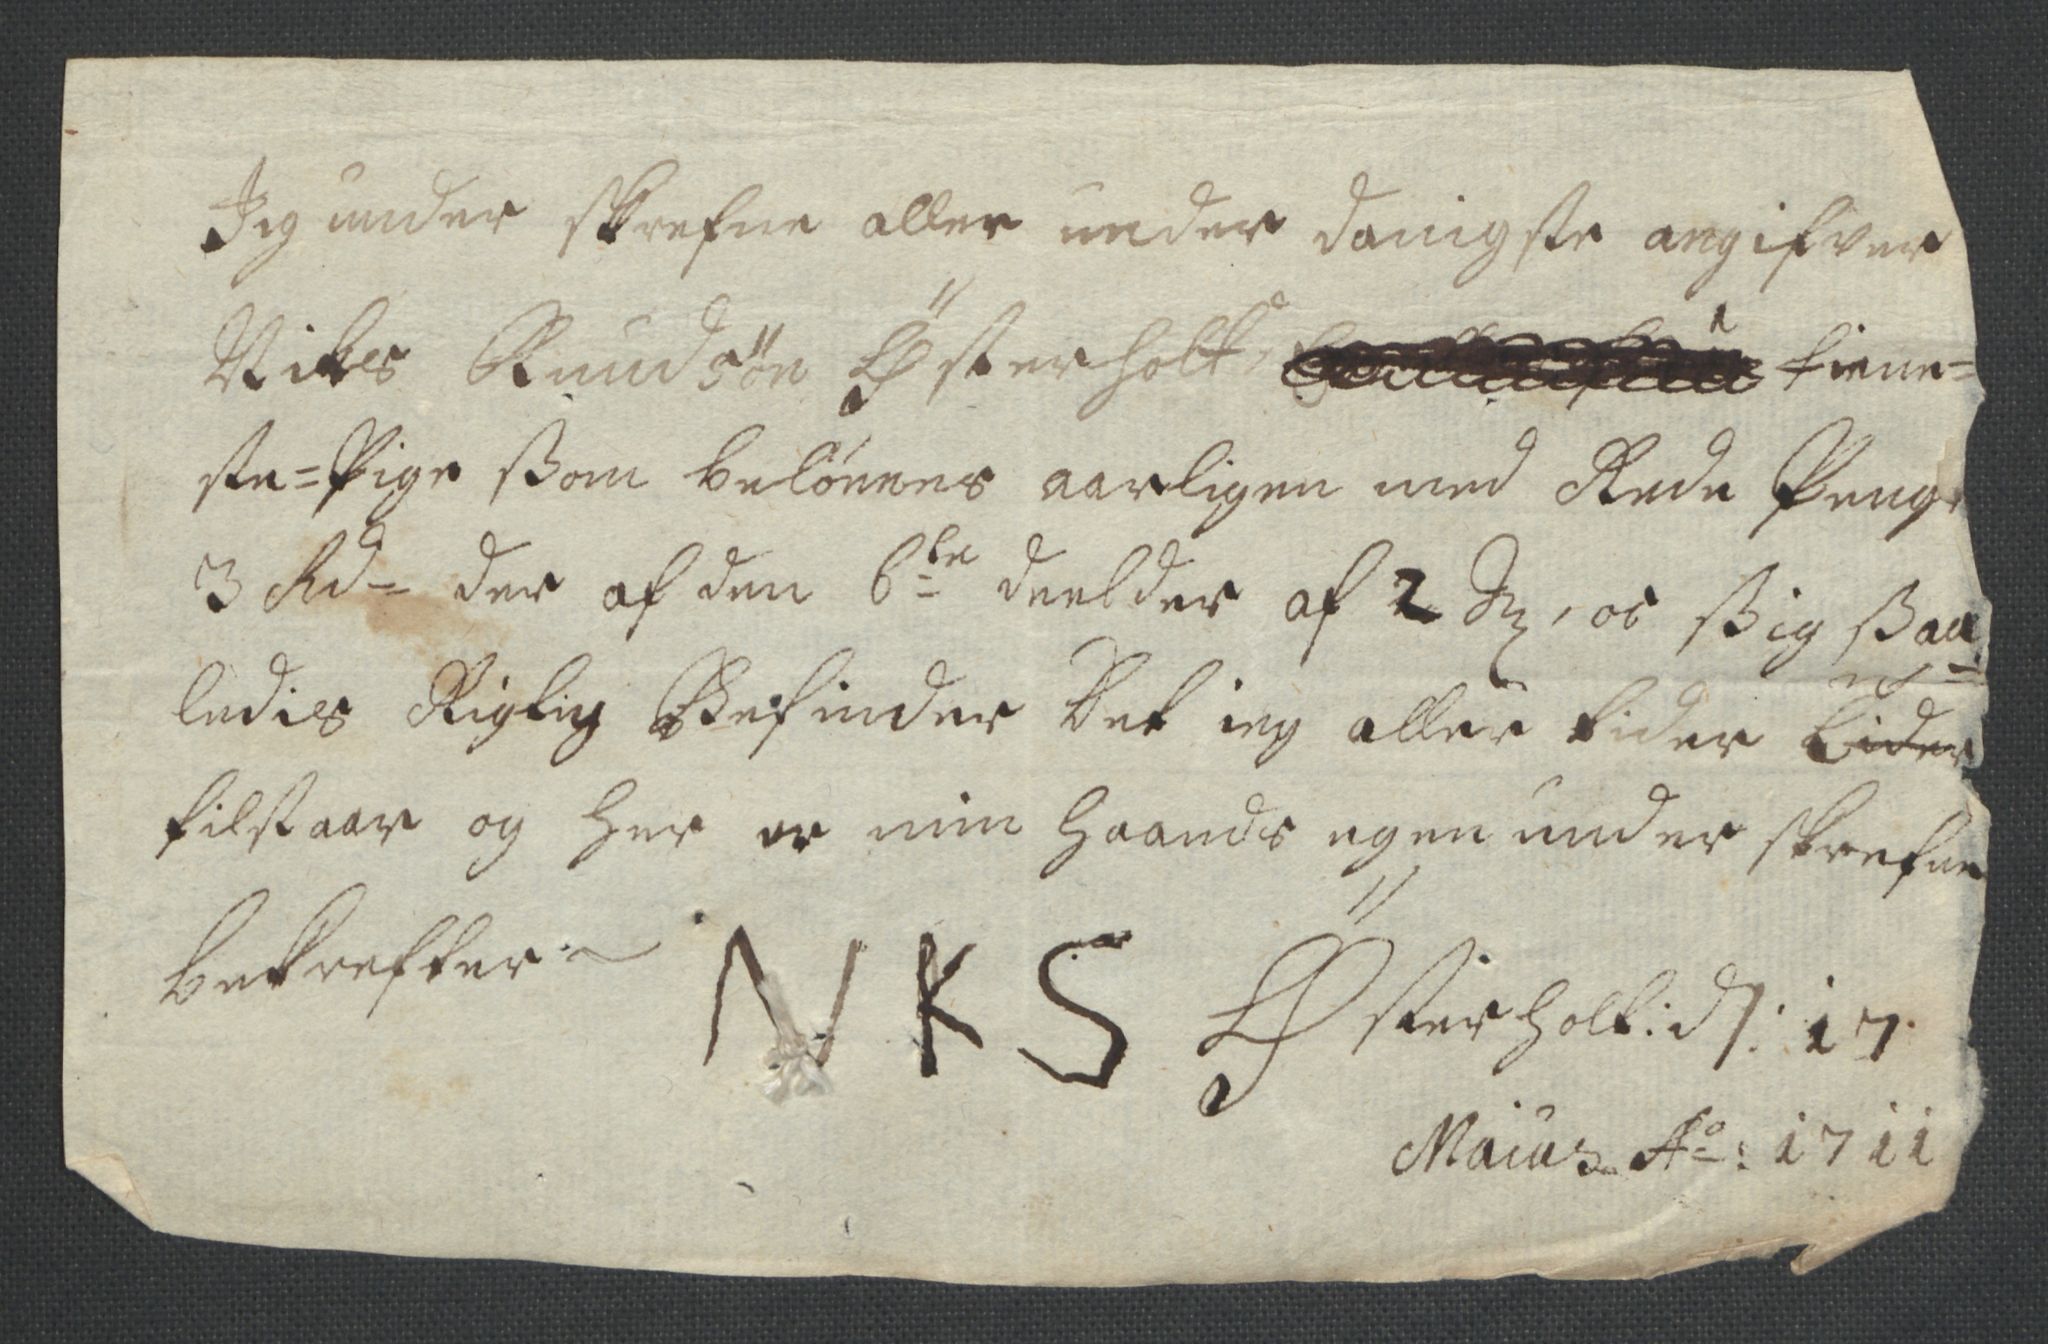 Jeg under skrefne aller under danigste angifver
Nikes Knudsön Østerholt 1 tiene=
ste=Pige ßom belönnes aarligen med Rede Penge
3 Rd der af den 6te deel der af 2 Mk, os ßig ßaa=
ledies Rigtig Befinder Det ieg aller tider
tilstaar og her er min Haands egen under skrefne
bekrefter
NKS Østerholt: d/: 17
Maius Ao: 1711